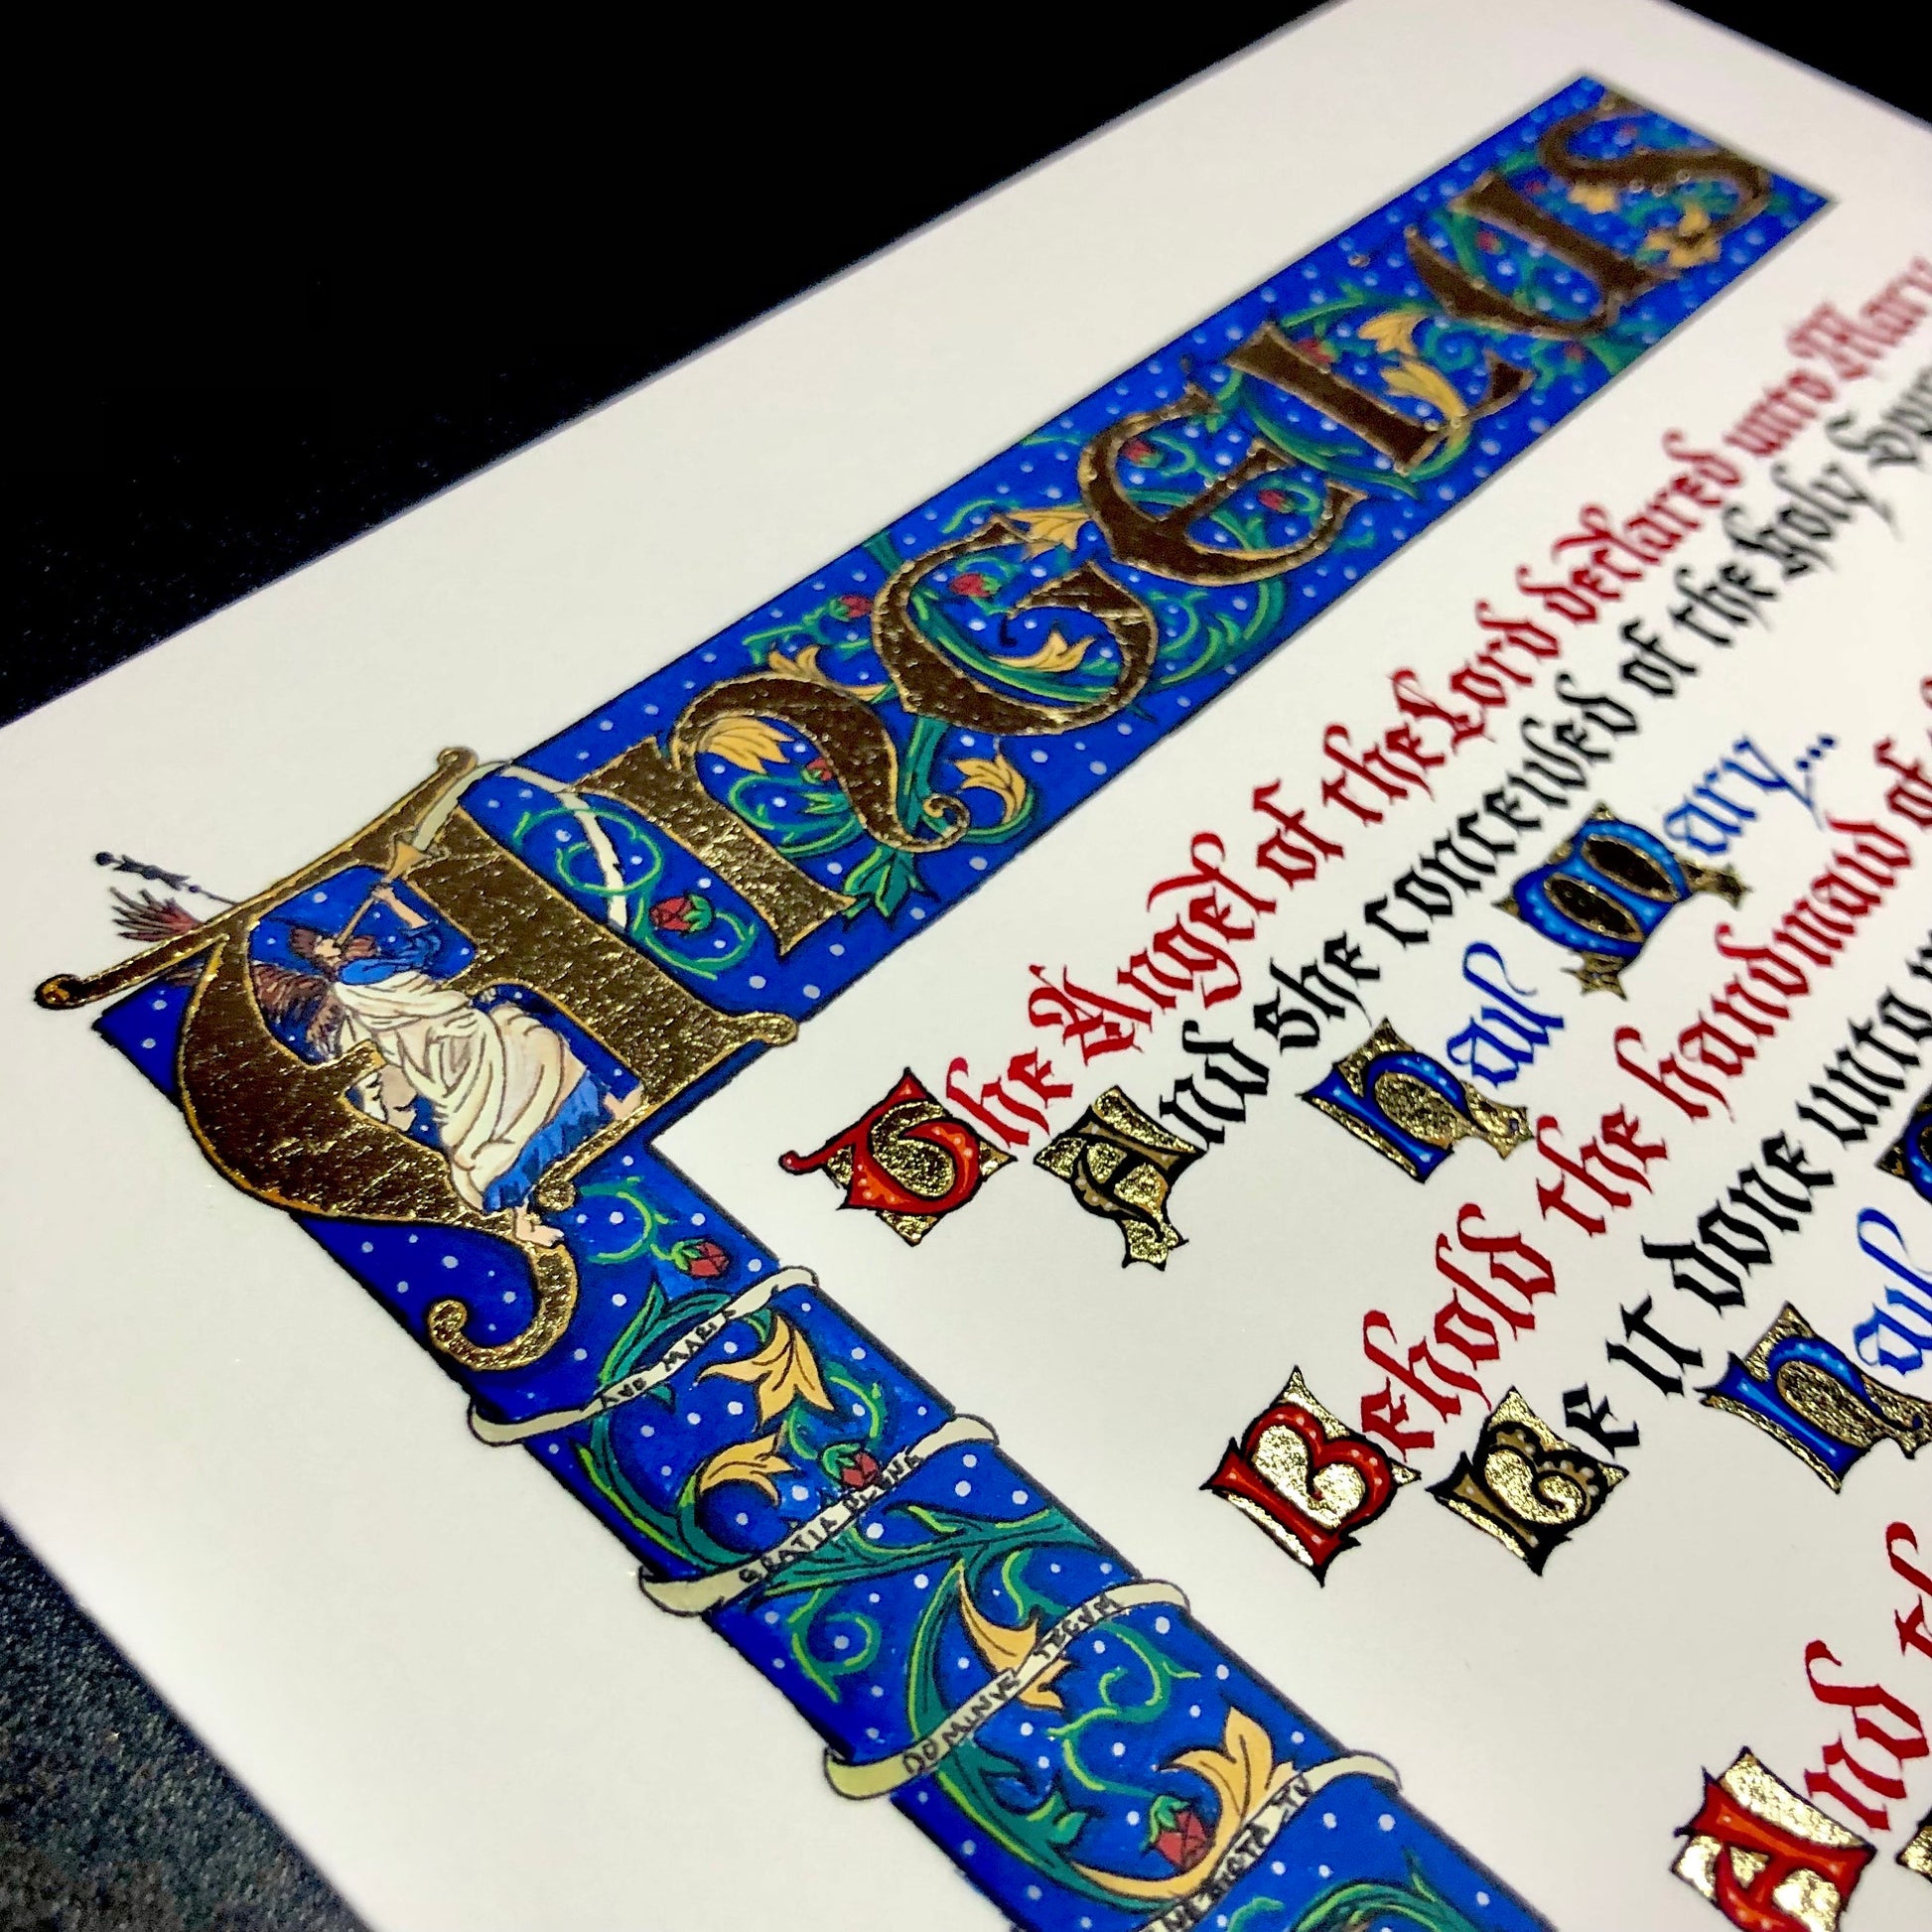 ANGELUS
The Angel of the Lord declared unto Mary
And she conceived of the holy
Hail Mary...
Behold the handmaid of
Be it done unto
Hail
And
AVE MARIA
GRATIA PLENA
DOMINVS TECVM
BENEDICTA TV